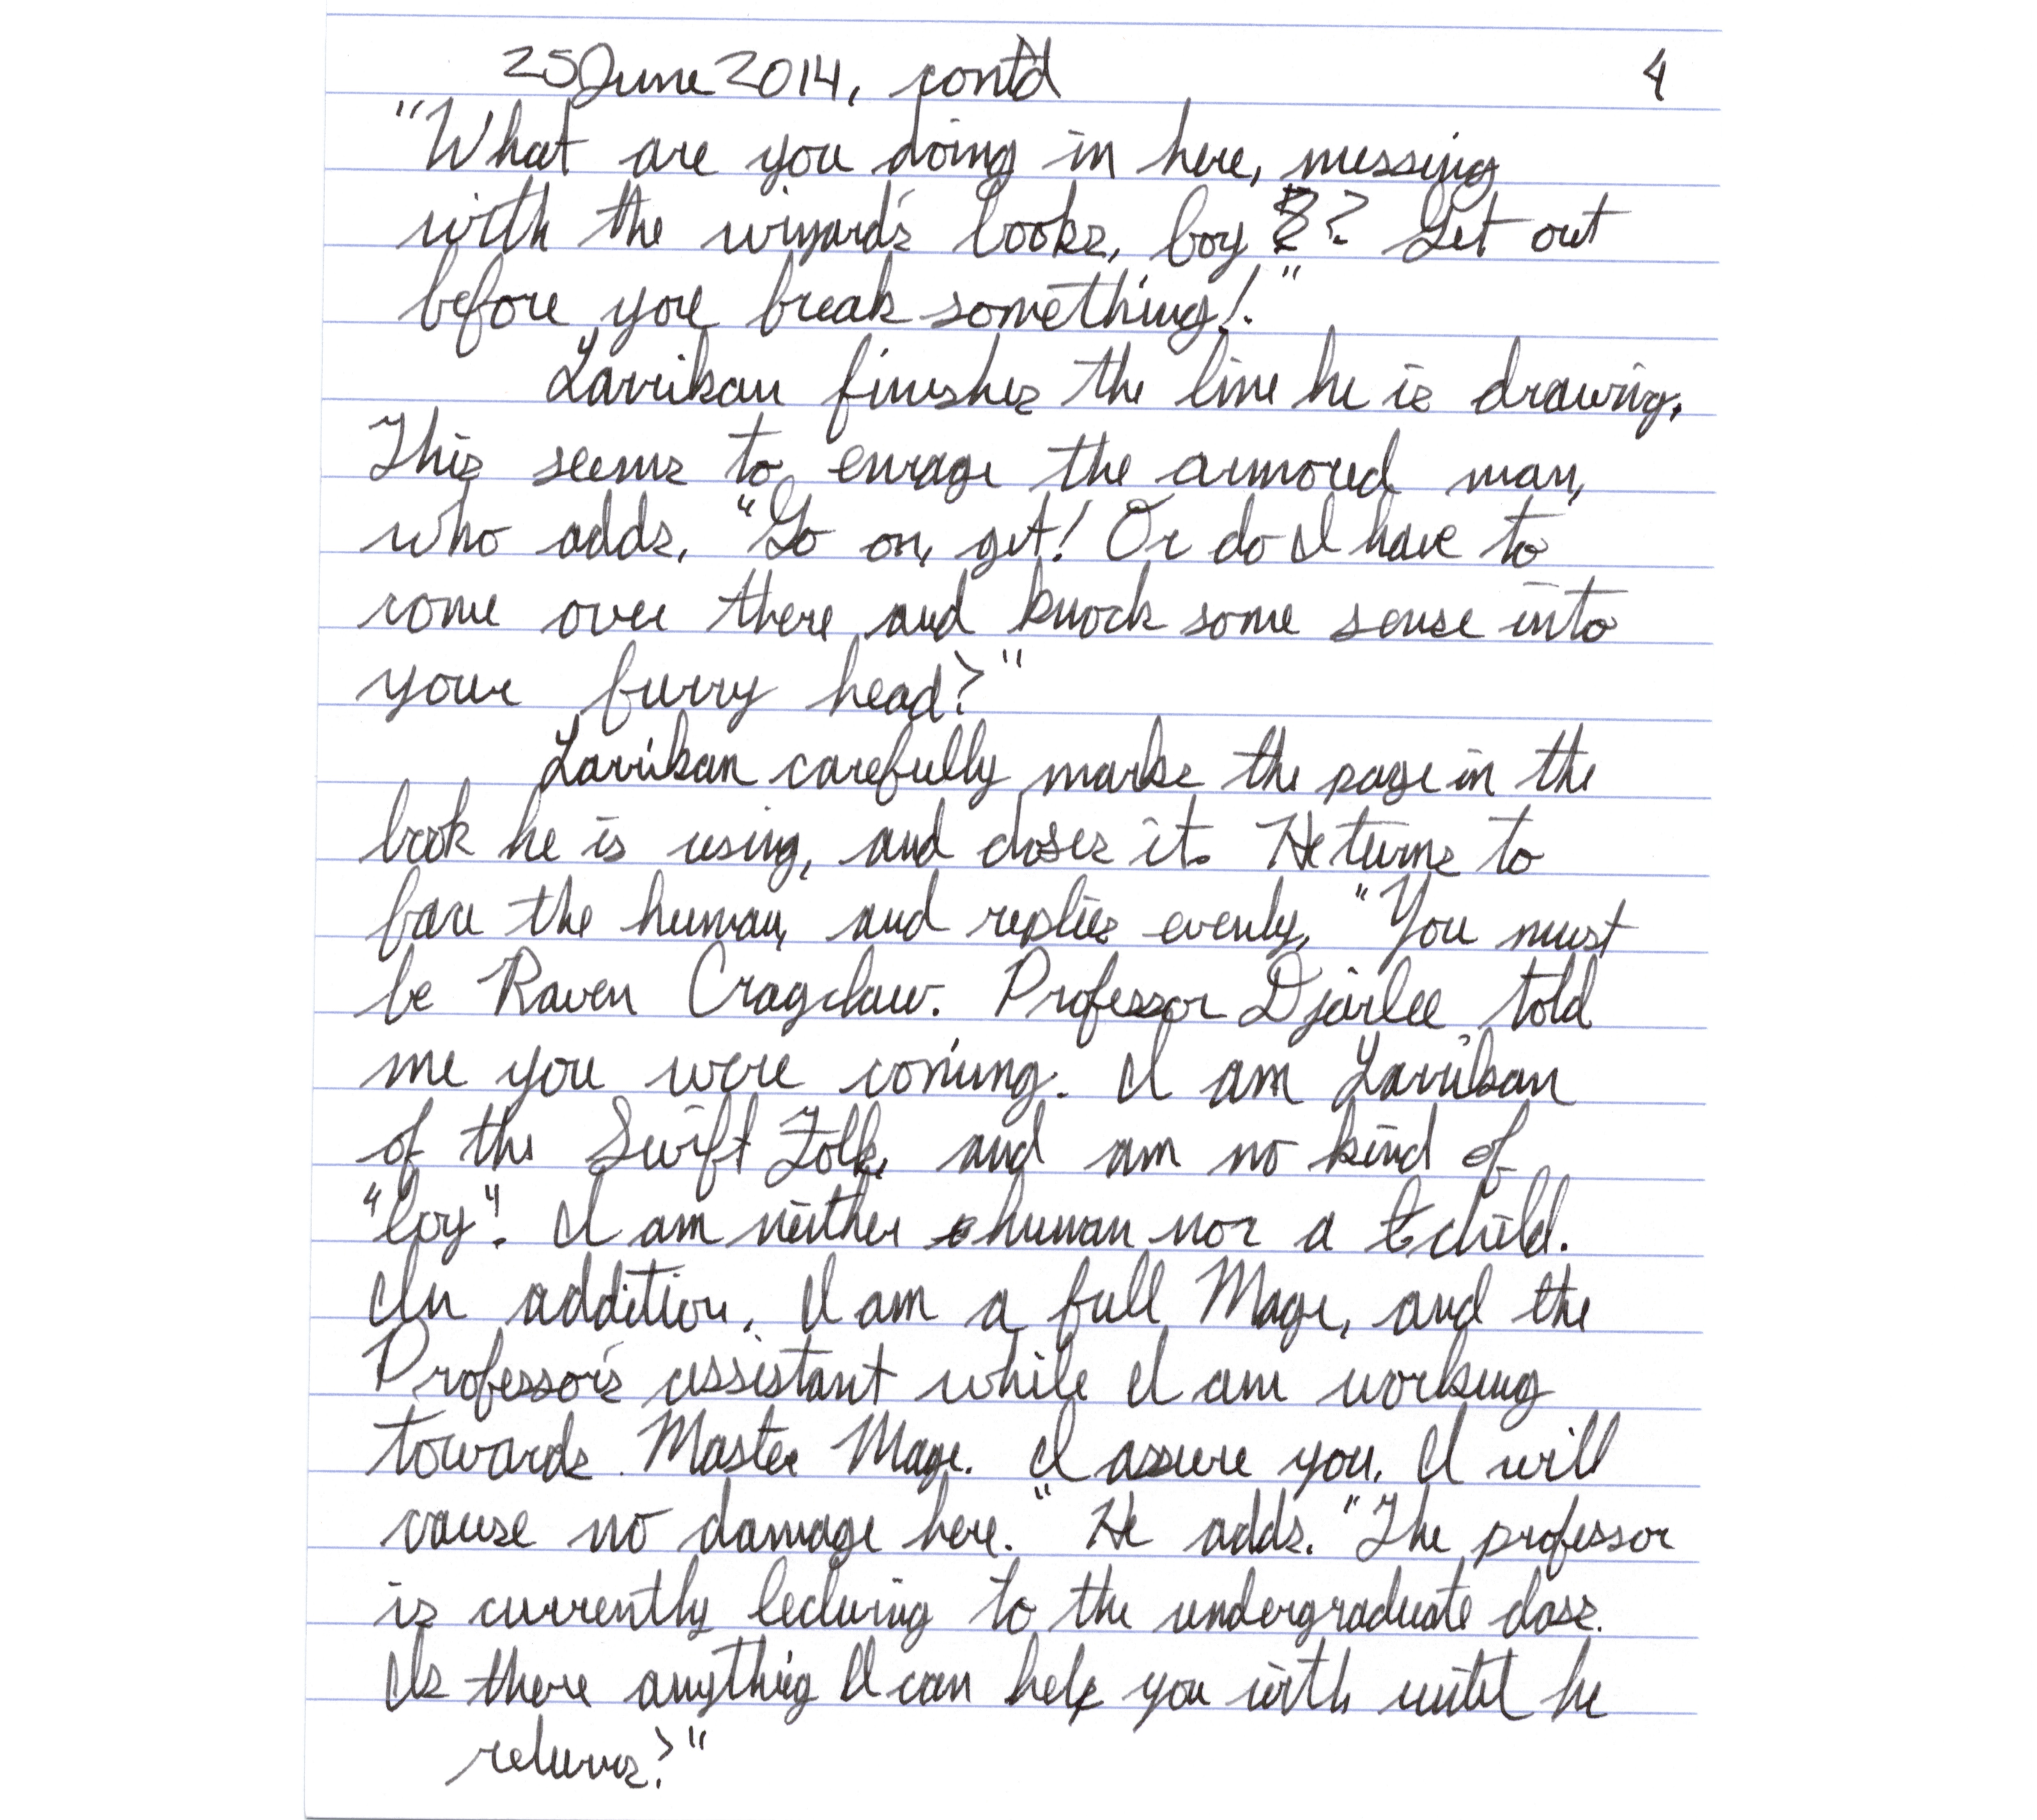 25 June 2014, cont'd 4
"What are you doing in here, messing
with the wizard's books, boy?? Get out
before you break something!"
Lavrikan finishes the line he is drawing.
This seems to enrage the armored man,
who adds, "Go on, get! Or do I have to
come over there and knock some sense into
your furry head?"
Lavrikan carefully marks the page in the
book he is using, and closes it. He turns to
face the human, and replies evenly, "You must
be Raven Cragclaw. Professor Djarlee told
me you were coming. I am Lavrikan
of the Swift Folk, and am no kind of
"boy". I am neither human nor a child.
In addition, I am a full Mage, and the
Professor's assistant while I am working
towards Master Mage. I assure you, I will
cause no damage here." He adds, "The professor
is currently lecturing to the undergraduate class.
Is there anything I can help you with until he
returns?"